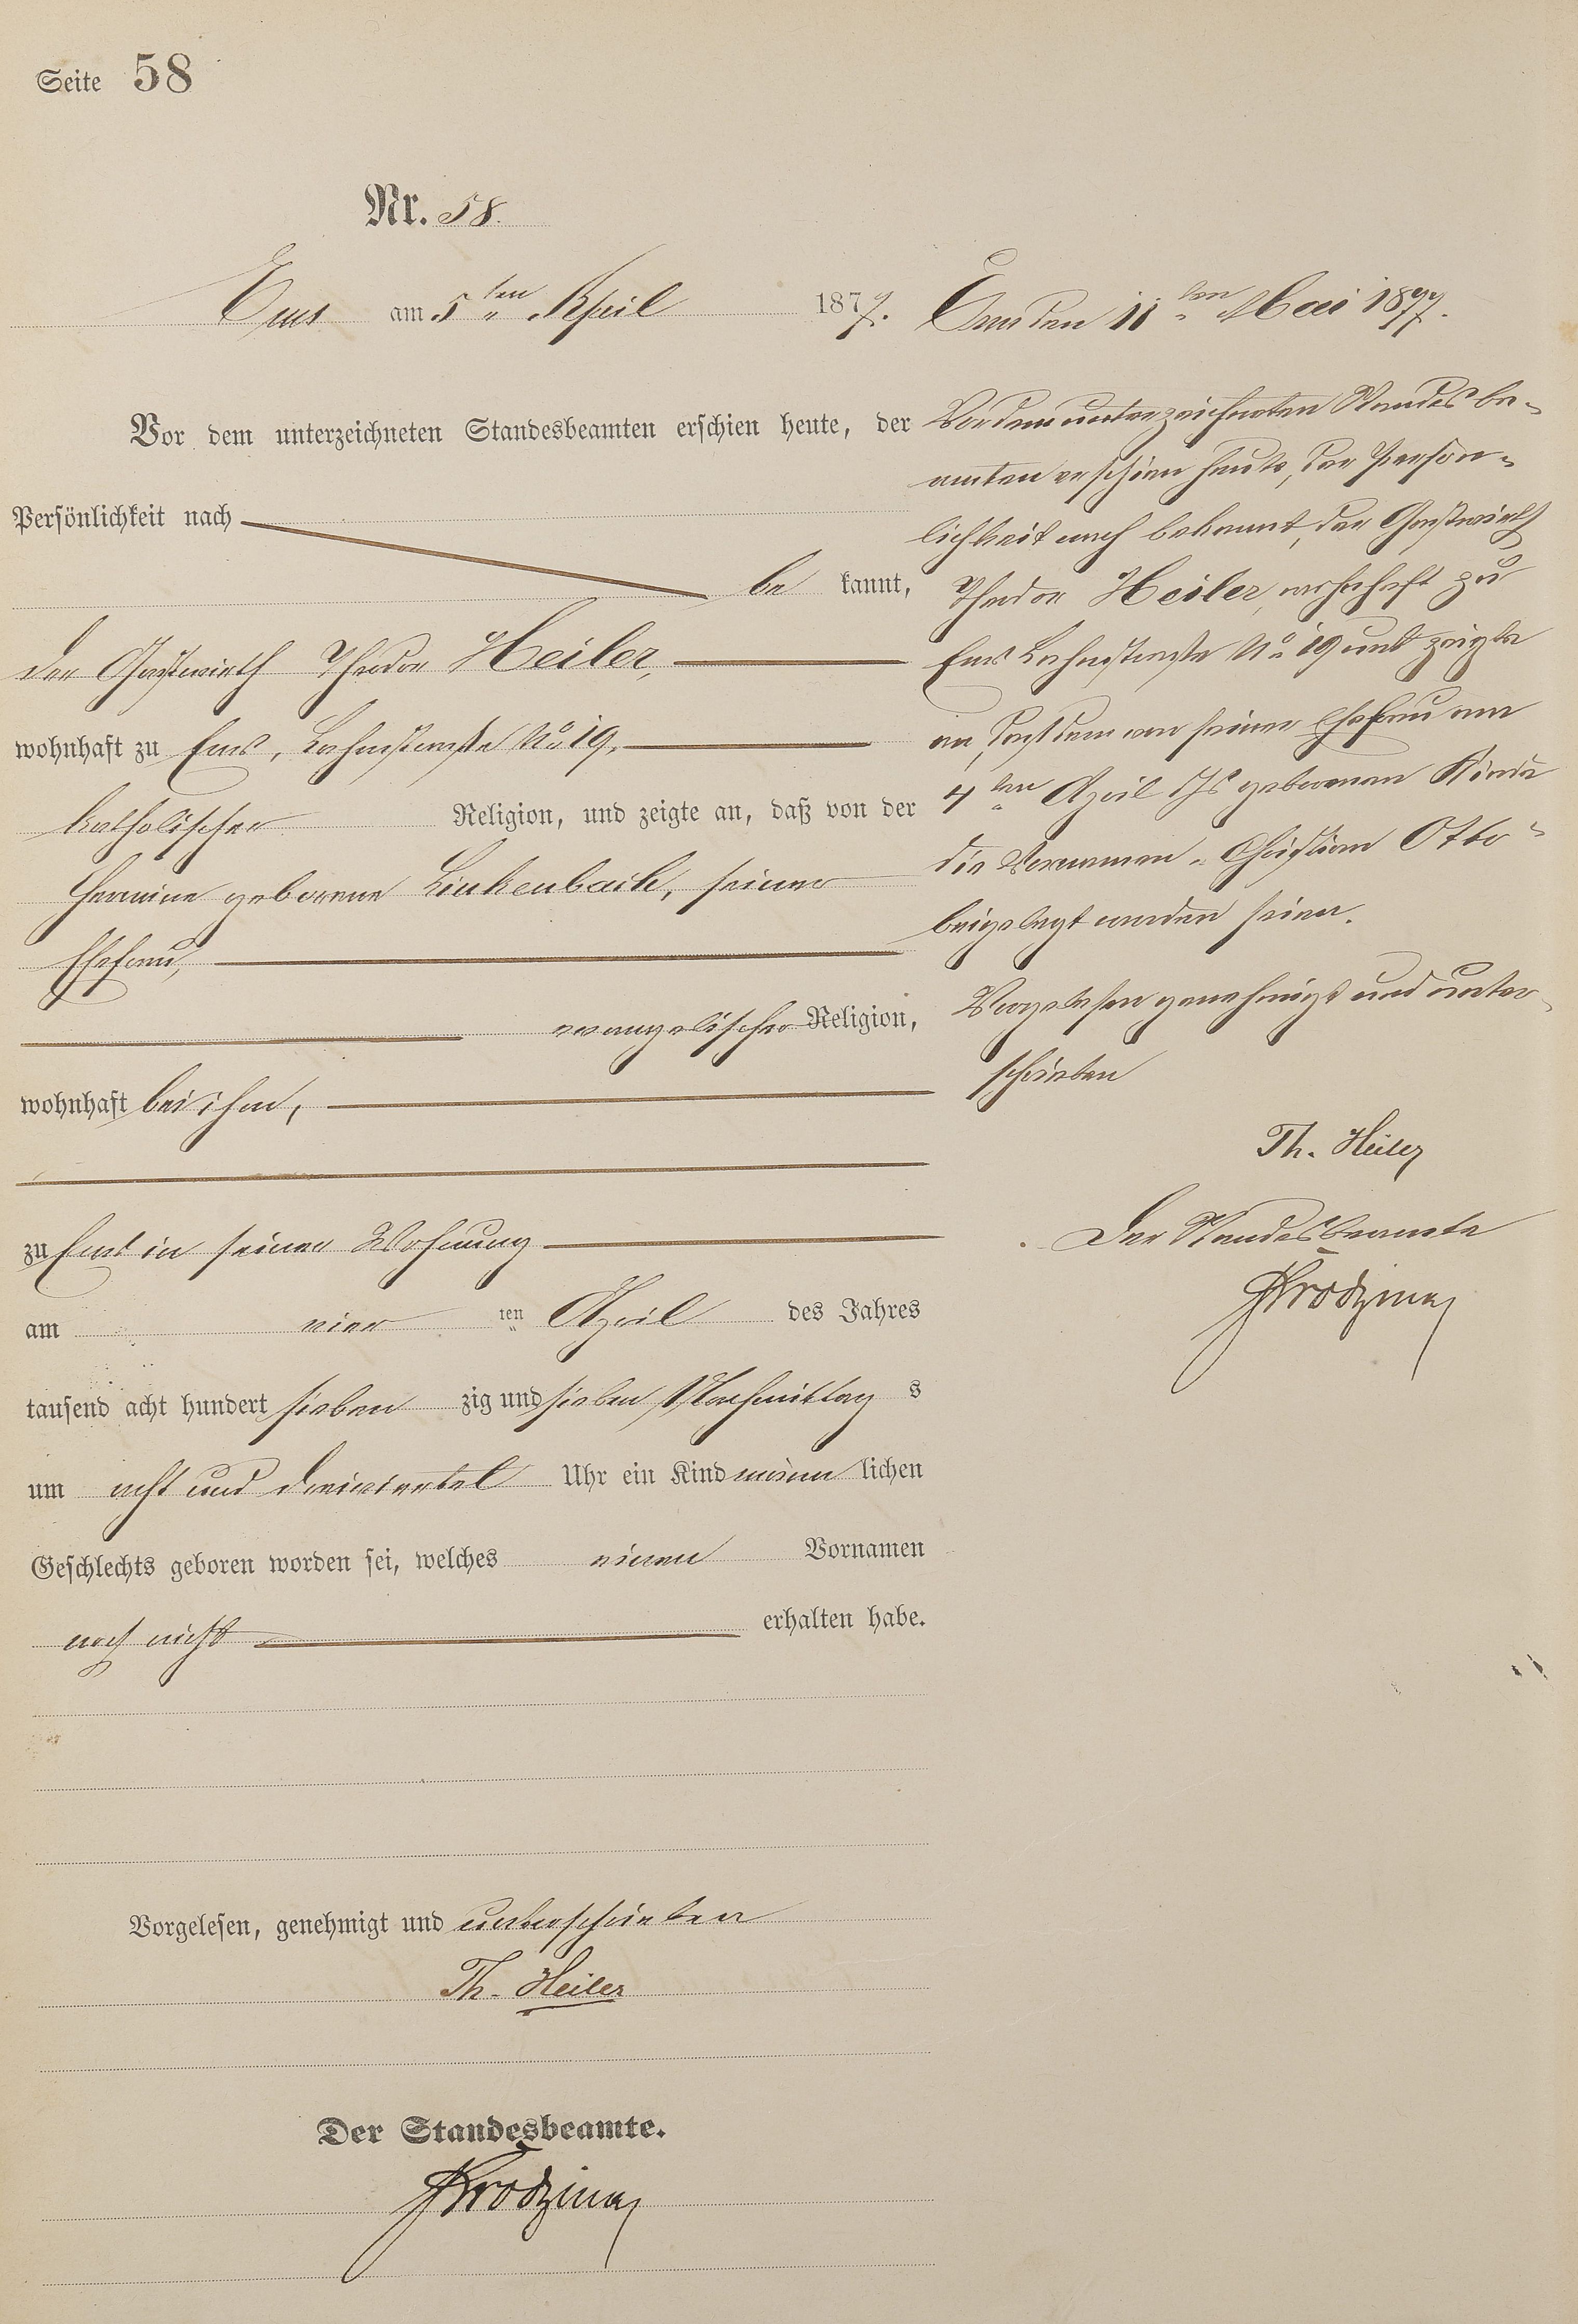 Seite 58
Nr. 58.
Ems am 5ten April 1877.
Vor dem unterzeichneten Standesbeamten erschien heute, der
Persönlichkeit nach
be kannt,
der Gastwirth Theodor Heiler,
wohnhaft zu Ems, Lahnstraße No 19,
katholischer Religion, und zeigte an, daß von der
Hermine geborene Linkenbach, seiner
Ehefrau,
evangelischer Religion,
wohnhaft bei ihm,
zu Ems in seiner Wohnung
am vier ten April des Jahres
tausend acht hundert sieben zig und sieben Nachmittag s
um acht und dreiviertel Uhr ein Kind männ lichen
Geschlechts geboren worden sei, welches einen Vornamen
noch nicht erhalten habe.
Vorgelesen, genehmigt und unterschrieben
Th. Heiler
Der Standesbeamte.
Ems den 11ten Mai 1877.
Vor dem unterzeichneten Standesbe-
amten erschien heute, der Persön-
lichkeit nach bekannt, der Gastwirth
Theodor Heiler, wohnhaft zu
Ems Lahnstraße No 19 und zeigte
an, daß dem von seiner Ehefrau am
4ten April Js geborenen Kinde
die Vornamen "Christian Otto"
beigelegt worden seien.
Vorgelesen genehmigt und unter-
schrieben
Th. Heiler
Der Standesbeamte